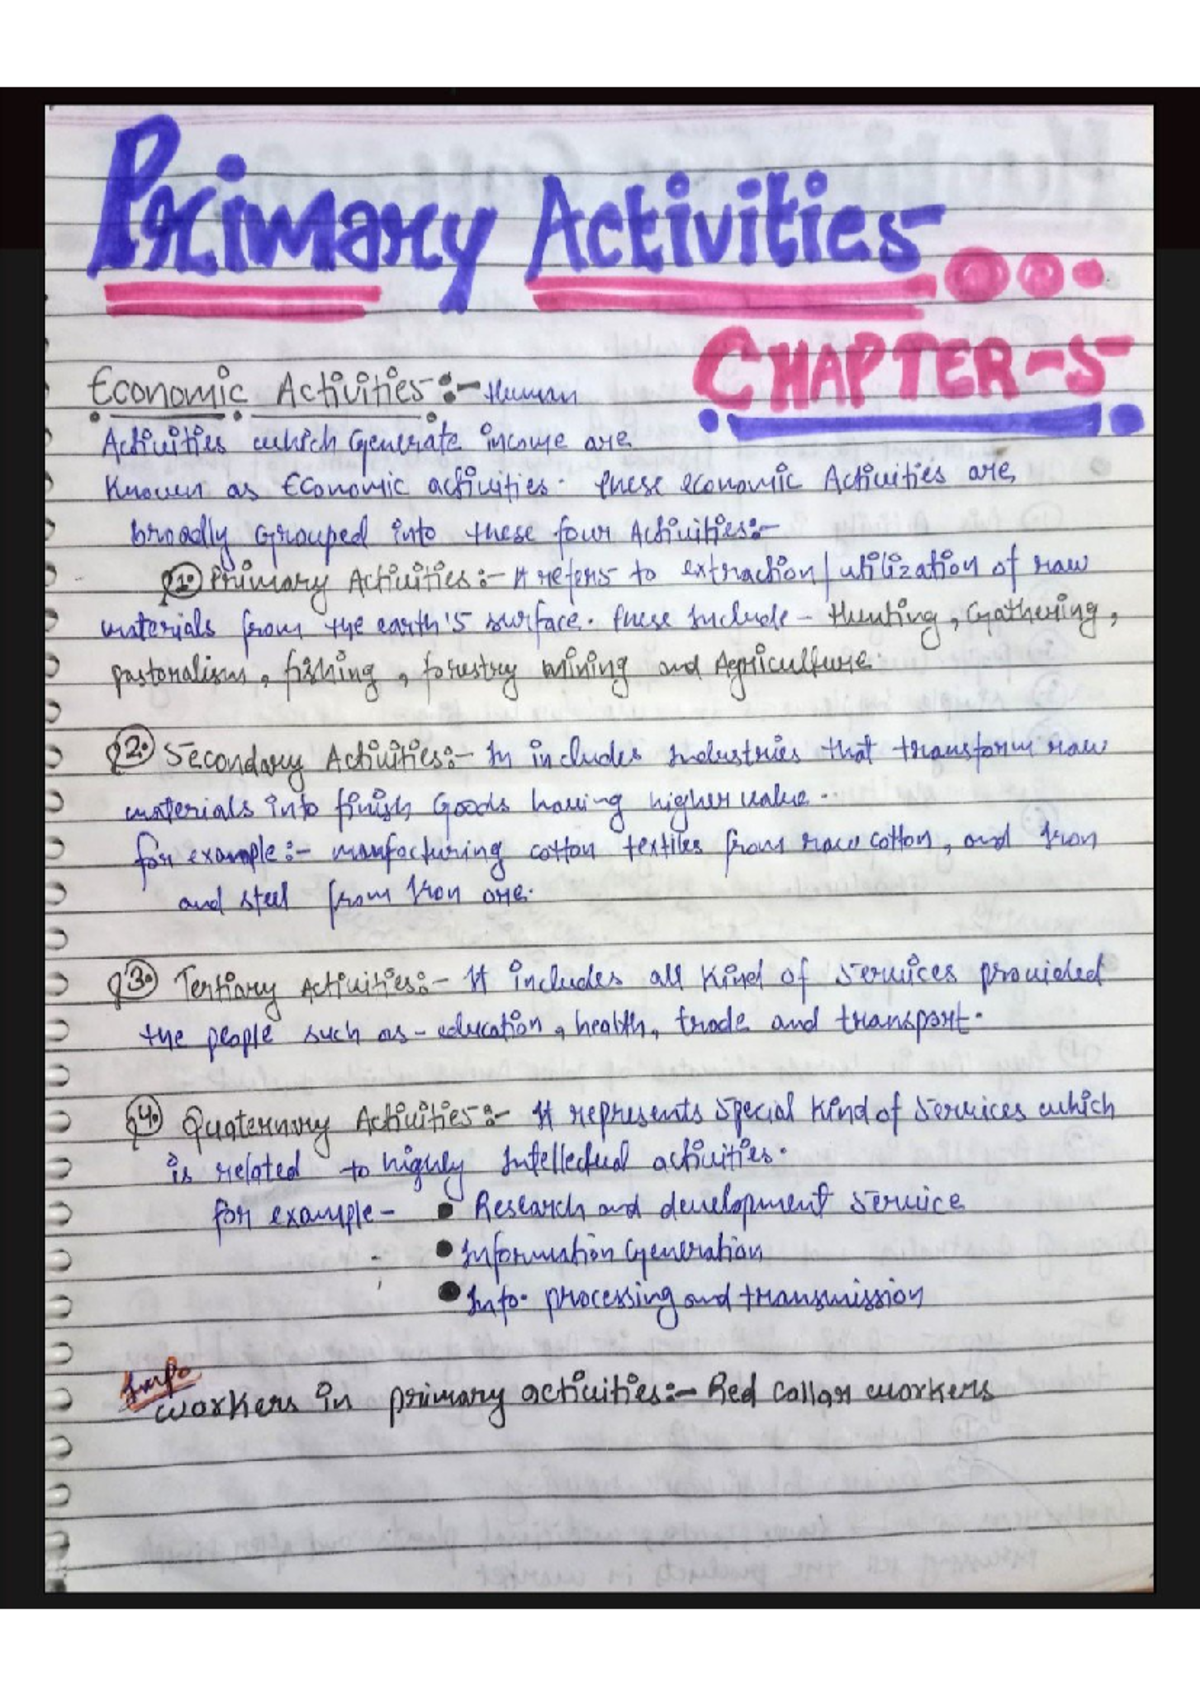 Primary Activities
CHAPTER-5
Economic Activities:- Human
Activities which Generate income are
Known as Economic activities. these economic Activities are
broadly Grouped into these four Activities:-
1. Primary Activities:- It refers to extraction/utilization of raw
materials from the earth's surface. these Include - Hunting, Gathering,
pastoralism, fishing, forestry mining and Agriculture.
2. Secondary Activities:- In includes Industries that transform raw
materials into finish Goods having higher value.
for example:- manfacturing cotton textiles from raw cotton, and Iron
and steel from Iron ore.
3. Tertiary Activities:- It includes all Kind of Services provided
the people such as - education, health, trade and transport.
4. Quaternary Activities:- It represents Special Kind of Services which
is related to highly Intellectual activities.
for example- • Research and development Service
• Information Generation
• Info. processing and transmission
Imp.
workers in primary activities:- Red collar workers